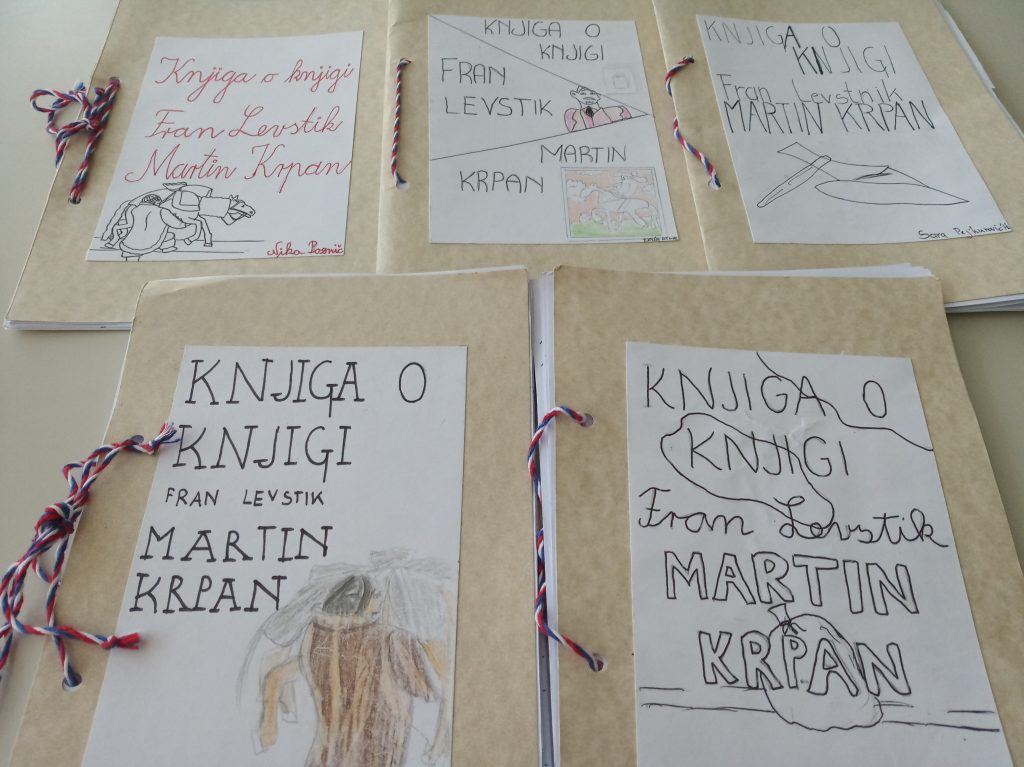 Knjiga o knjigi
Fran Levstik
Martin Krpan
Nika
KNJIGA O
KNJIGI
FRAN
LEVSTIK
MARTIN
KRPAN
KNJIGA O
KNJIGI
Fran Levstnik
MARTIN KRPAN
Sara
KNJIGA O
KNJIGI
FRAN LEVSTIK
MARTIN
KRPAN
KNJIGA O
KNJIGI
Fran Levstik
MARTIN
KRPAN